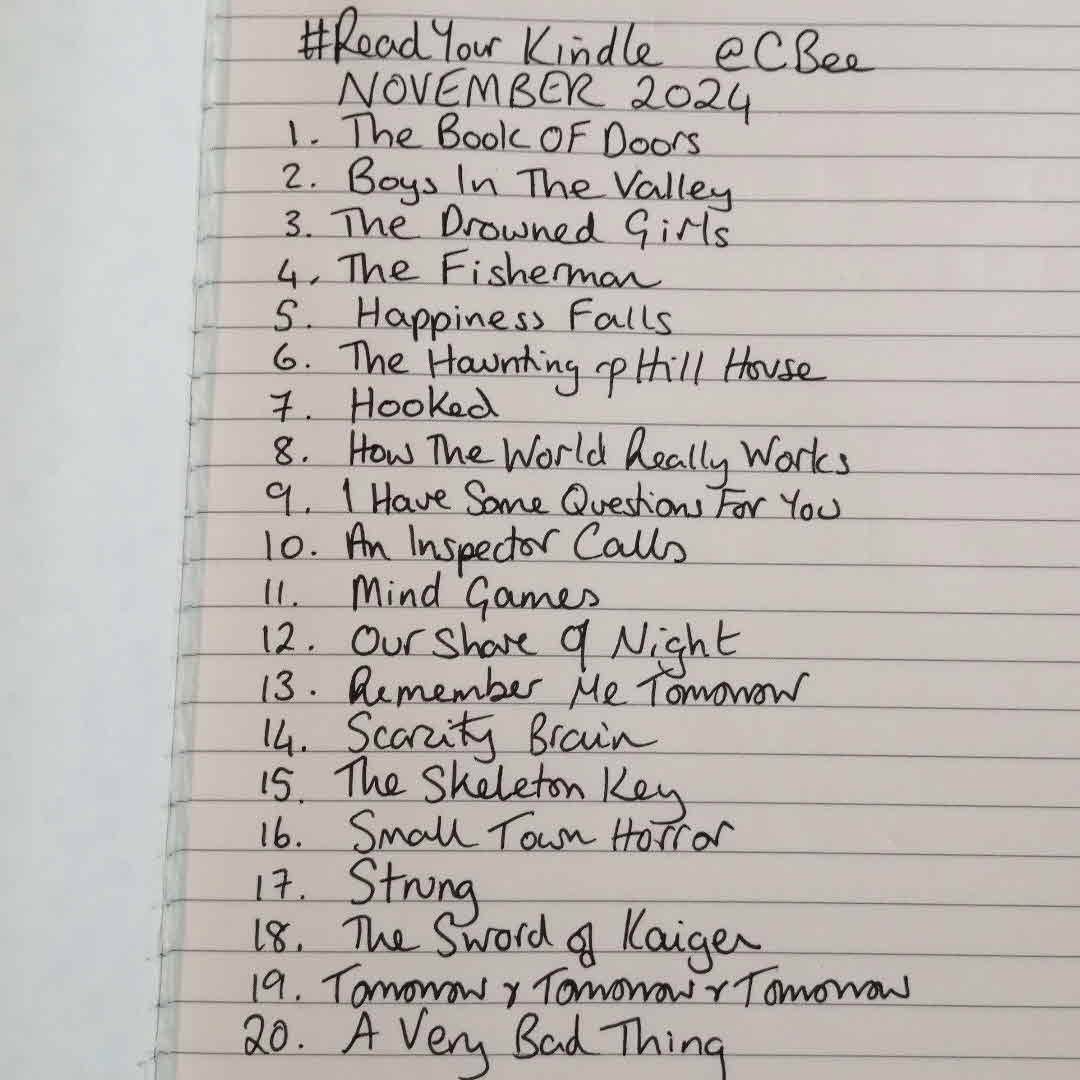 #ReadYour Kindle @CBee
NOVEMBER 2024
1. The Book OF Doors
2. Boys In The Valley
3. The Drowned Girls
4. The Fisherman
5. Happiness Falls
6. The Haunting of Hill House
7. Hooked
8. How The World Really Works
9. I Have Some Questions For You
10. An Inspector Calls
11. Mind Games
12. Our Share of Night
13. Remember Me Tomorrow
14. Scarcity Brain
15. The Skeleton Key
16. Small Town Horror
17. Strung
18. The Sword of Kaigen
19. Tomorrow & Tomorrow & Tomorrow
20. A Very Bad Thing